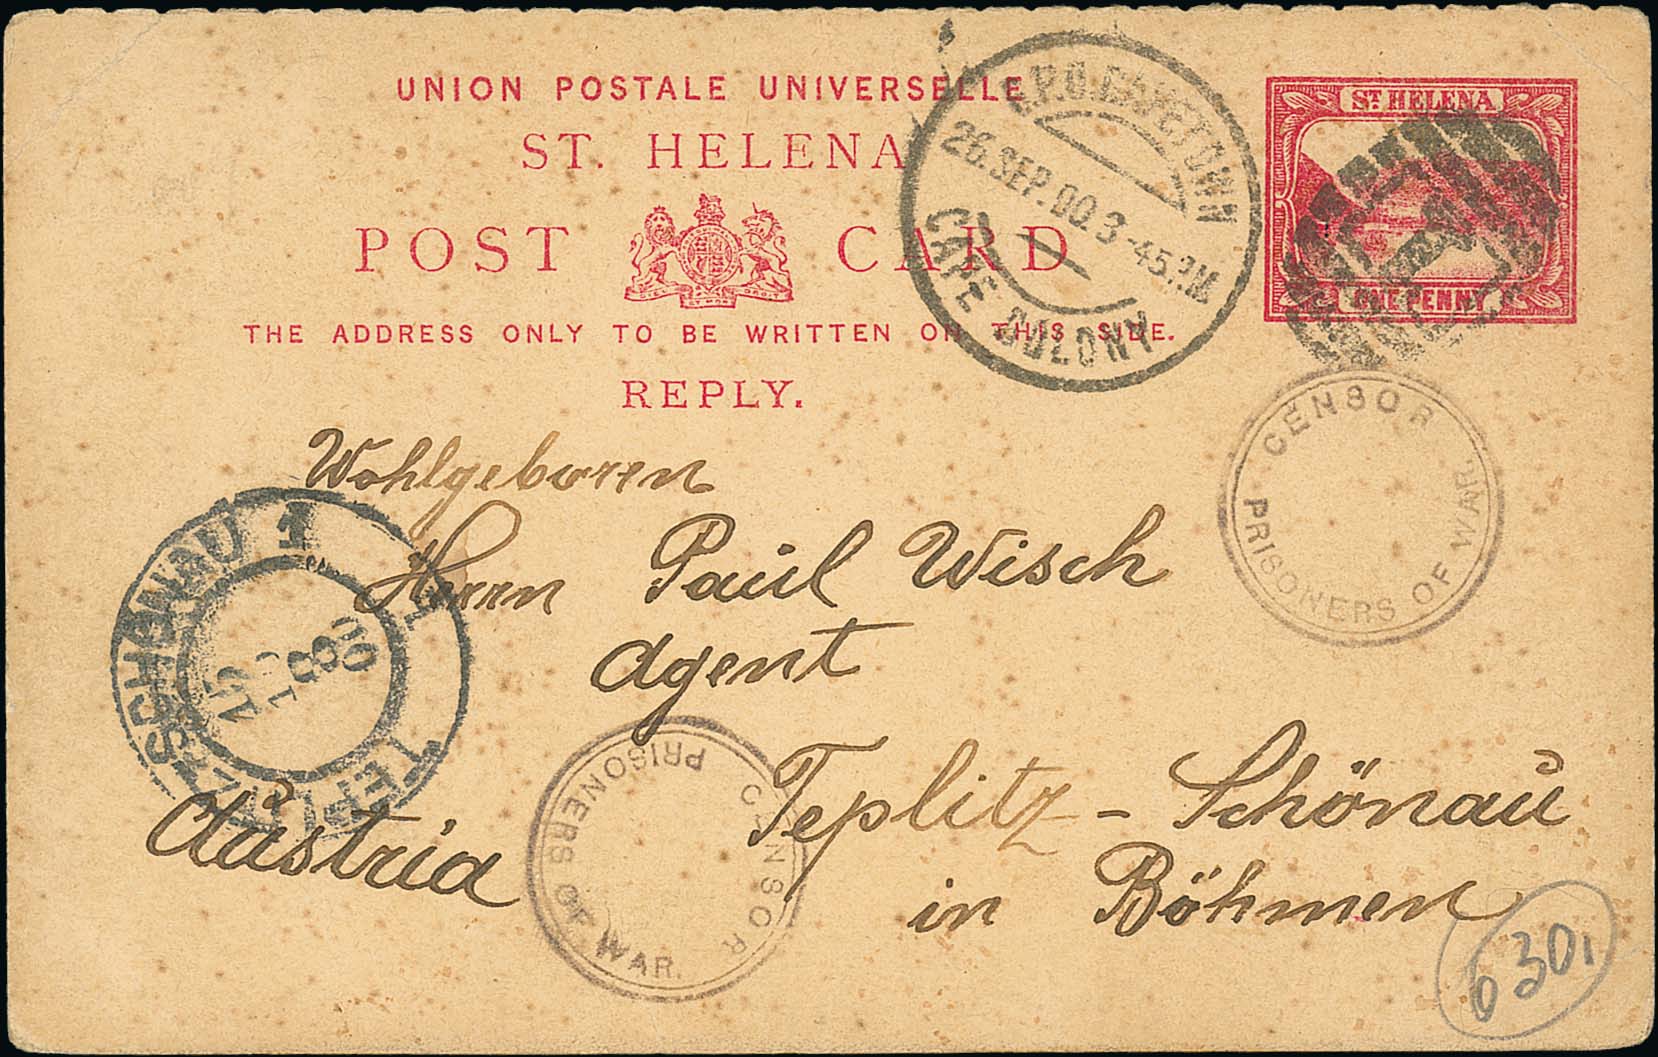 UNION POSTALE UNIVERSELLE
ST. HELENA
POST CARD
DIEU ET MON DROIT
THE ADDRESS ONLY TO BE WRITTEN ON THIS SIDE.
REPLY.
ST HELENA
ONE PENNY
G.P.O. CAPETOWN
26.SEP.00.3-45 P.M.
CAPE COLONY
CENSOR
PRISONERS OF WAR.
Wohlgeboren
Herrn Paul Wisch
Agent
Teplitz - Schönau
in Böhmen
Austria
TEPLITZ
SCHÖNAU 1
15
18
00
CENSOR
PRISONERS OF WAR.
6301